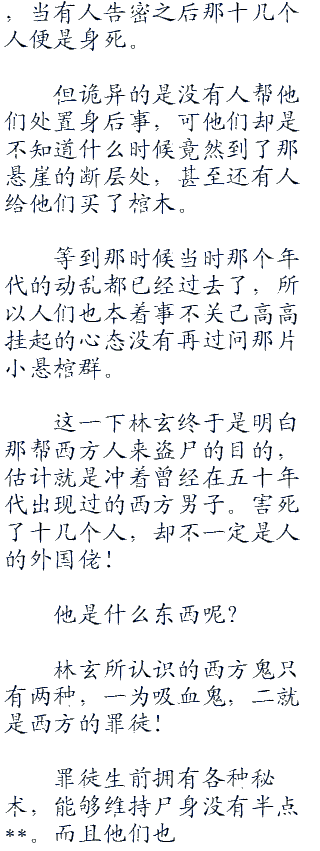 ，当有人告密之后那十几个
人便是身死。
但诡异的是没有人帮他
们处置身后事，可他们却是
不知道什么时候竟然到了那
悬崖的断层处，甚至还有人
给他们买了棺木。
等到那时候当时那个年
代的动乱都已经过去了，所
以人们也本着事不关己高高
挂起的心态没有再过问那片
小悬棺群。
这一下林玄终于是明白
那帮西方人来盗尸的目的，
估计就是冲着曾经在五十年
代出现过的西方男子。害死
了十几个人，却不一定是人
的外国佬！
他是什么东西呢？
林玄所认识的西方鬼只
有两种，一为吸血鬼，二就
是西方的罪徒！
罪徒生前拥有各种秘
术，能够维持尸身没有半点
**。而且他们也